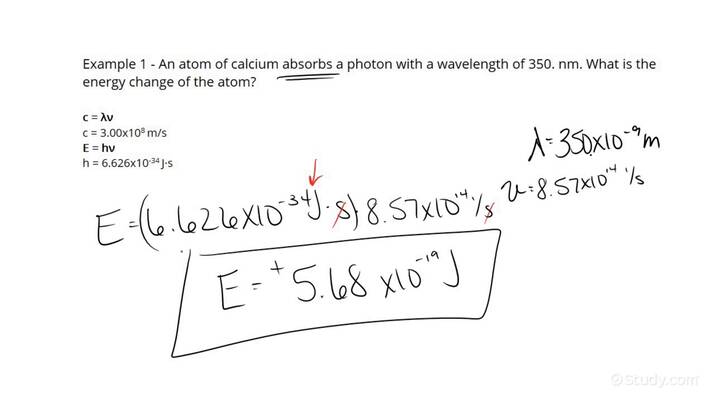 Example 1 - An atom of calcium absorbs a photon with a wavelength of 350. nm. What is the
energy change of the atom?
c = λν
c = 3.00x10⁸ m/s
E = hν
h = 6.626x10⁻³⁴ J·s
λ = 350.x10⁻⁹ m
ν = 8.57x10¹⁴ 1/s
E = (6.626x10⁻³⁴ J·s) 8.57x10¹⁴ 1/s
E = +5.68 x10⁻¹⁹ J
©Study.com